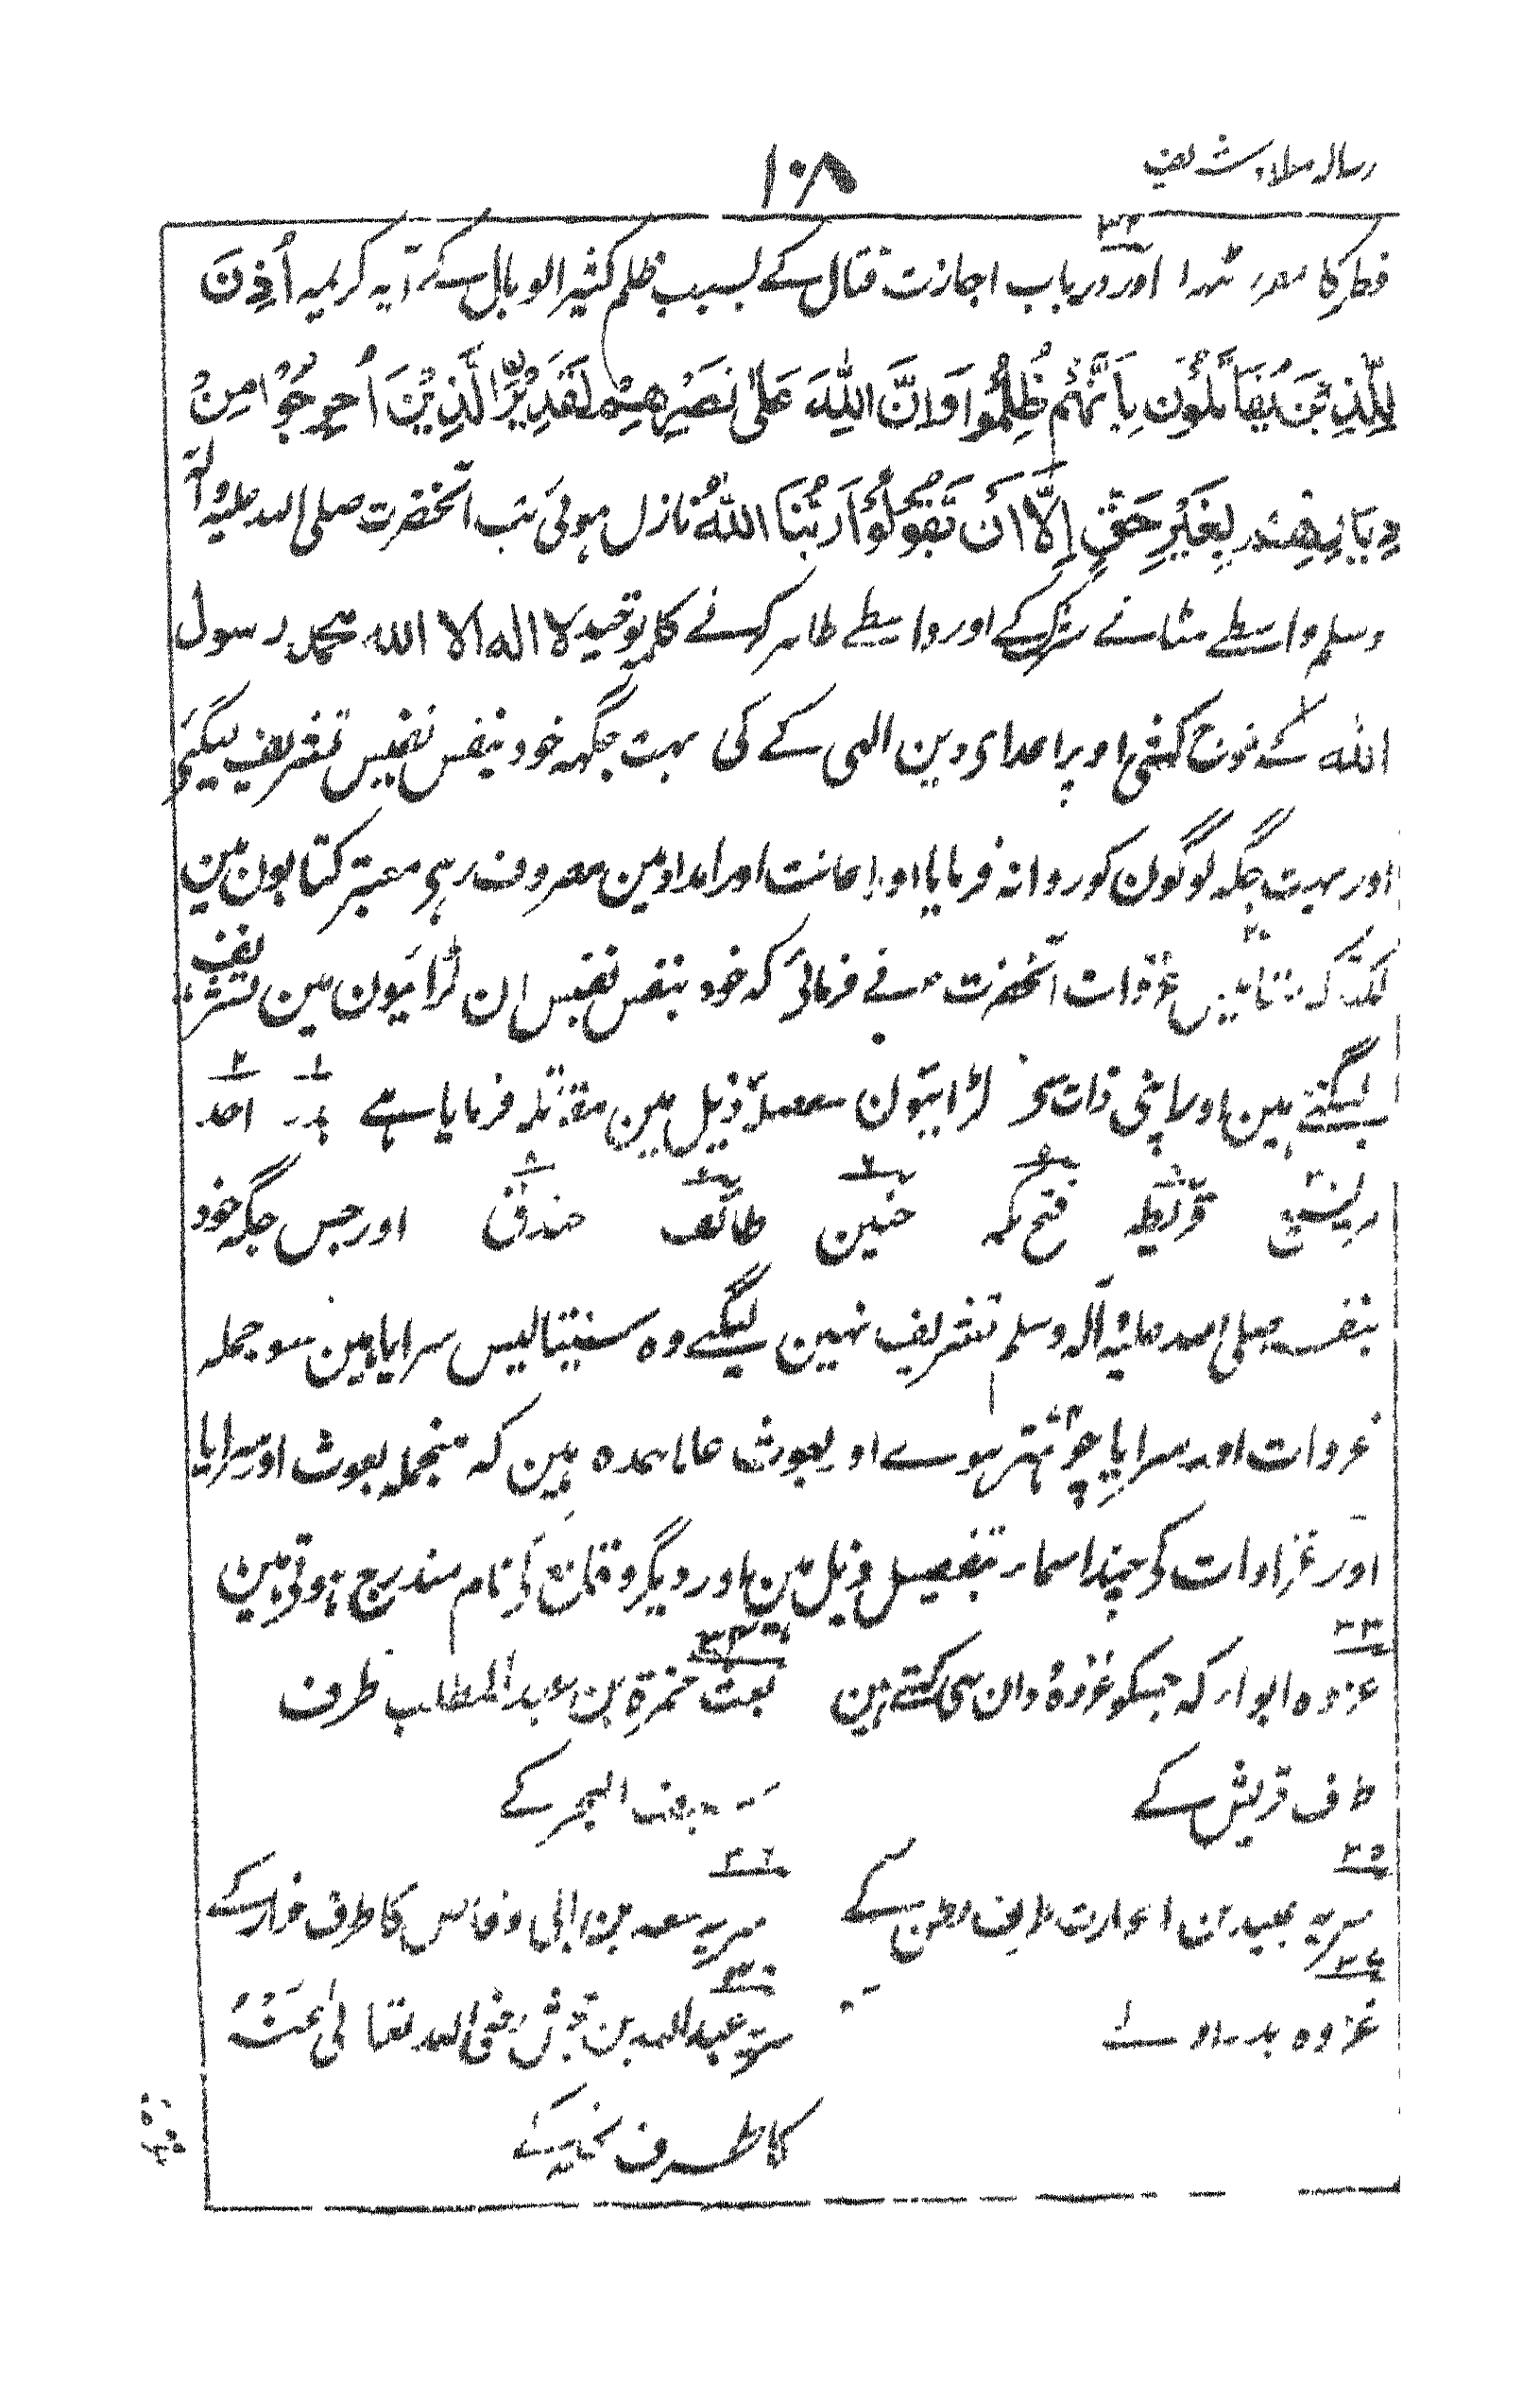 رسالہ میلاد شریف
۱۰۸
فطر کا مقرر ٹہرا اور درباب اجازت قتال کے بسبب ظلم کثیر الوبال کے آیہ کریمہ اُذِنَ
لِلَّذِيْنَ يُقَاتَلُوْنَ بِاَنَّهُمْ ظُلِمُوْا وَاِنَّ اللّٰهَ عَلٰى نَصْرِهِمْ لَقَدِيْرُ الَّذِيْنَ اُخْرِجُوْا مِنْ
دِيَارِهِمْ بِغَيْرِ حَقٍّ اِلَّا اَنْ يَّقُوْلُوْا رَبُّنَا اللّٰهُ نازل ہوئی تب آنحضرت صلی اللہ علیہ وآلہ
وسلم واسطے مٹانے شرک کے اور واسطے ظاہر کرنے کلمہ توحید لا الہ الا اللہ محمد رسول
اللہ کے فوج کشی اوپر اعدای دین الہی کے کی بہت جگہہ خود بنفس نفیس تشریف لیگئے
اور بہت جگہ لوگون کو روانہ فرمایا اور اعانت اور امداد مین مصروف رہے معتبر کتابون مین
غزوات آنحضرت نے فرمائی کہ خود بنفس نفیس ان لڑائیون مین تشریف
لیگئے ہین اور اپنی ذات سے لڑائیون مفصلہ ذیل مین مقاتلہ فرمایا ہے ۱ بدر ۲ احد
قریظہ فتح مکہ حنین طائف ۸ خندق اور جس جگہ خود
بنفسہ صلی اللہ علیہ وآلہ وسلم تشریف نہین لیگئے وہ سینتالیس سرایا ہین سو جملہ
غزوات اور سرایا چوہتر ہوے اور بعوث علاحدہ ہین کہ منجملہ بعوث اور سرایا
اور غزاوات کی چند اسما بتفصیل ذیل ہین اور دیگر وقائع کے نام مندرج ہوتی ہین
غزوہ ابوا کہ جسکو غزوۂ ودان بھی کہتے ہین
طرف قریش کے
بعث حمزۃ بن عبد المطلب طرف
سیف البحر کے
۲۵
سریہ عبیدہ بن الحارث طرف بطن کے
۲۶
سریہ سعد بن ابی وقاص کا طرف خرار کے
غزوہ بدر اولے
سریہ عبد اللہ بن جحش رضی اللہ تعالی عنہ
کا طرف نخلہ کے